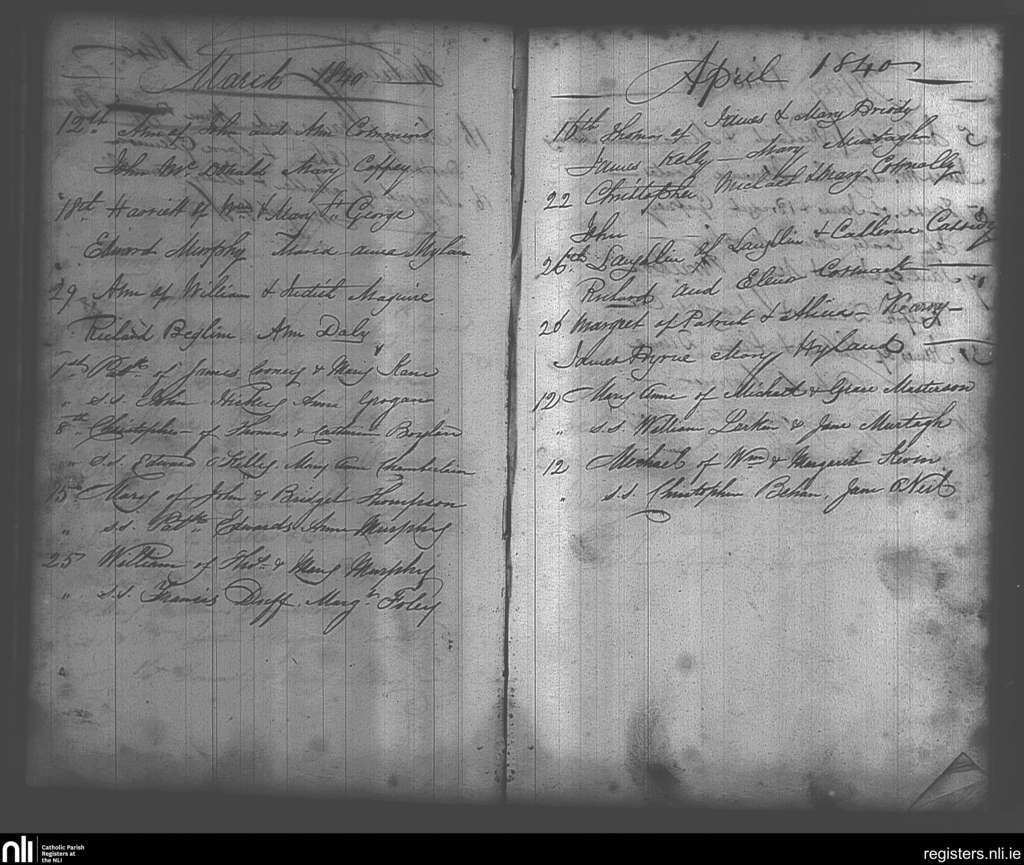 March 1840
12th Ann of John and Ann Commins
John Mc Donald Mary Coffey
18th Harriett of Wm & Mary St George
Edward Murphy Maria
29 Ann of William & Judith Maguire
Richard Beglin Ann Daly
1st Patk of James Cooney & Mary Kane
" s.s. Hickey Anne Grogan
8th Christopher of Thomas & Catherine Boylan
" s.s. Edward O Kelly Mary Anne Chamberlain
15th Mary of John & Bridget Thompson
" s.s. Patk Edwards Anne Murphy
25 William of Thos & Mary Murphy
" s.s. Francis Duff Margt Foley
April 1840
16th Thomas of James & Mary Briody
James Kelly - Mary Murtagh
22 Christopher Michael & Mary Connolly
John
26th Laughlin of Laughlin & Catherine Cassidy
Richard and Ellen Cormack
26 Margret of Patrick & Alicia - Kearny -
James Byrne Mary Hyland
12 Mary Anne of Michael & Grace Masterson
" s.s. William Larkin & Jane Murtagh
12 Michael of Wm & Margaret
" s.s. Christopher Behan, Jane O Neil
nli Catholic Parish
Registers at
the NLI
registers.nli.ie